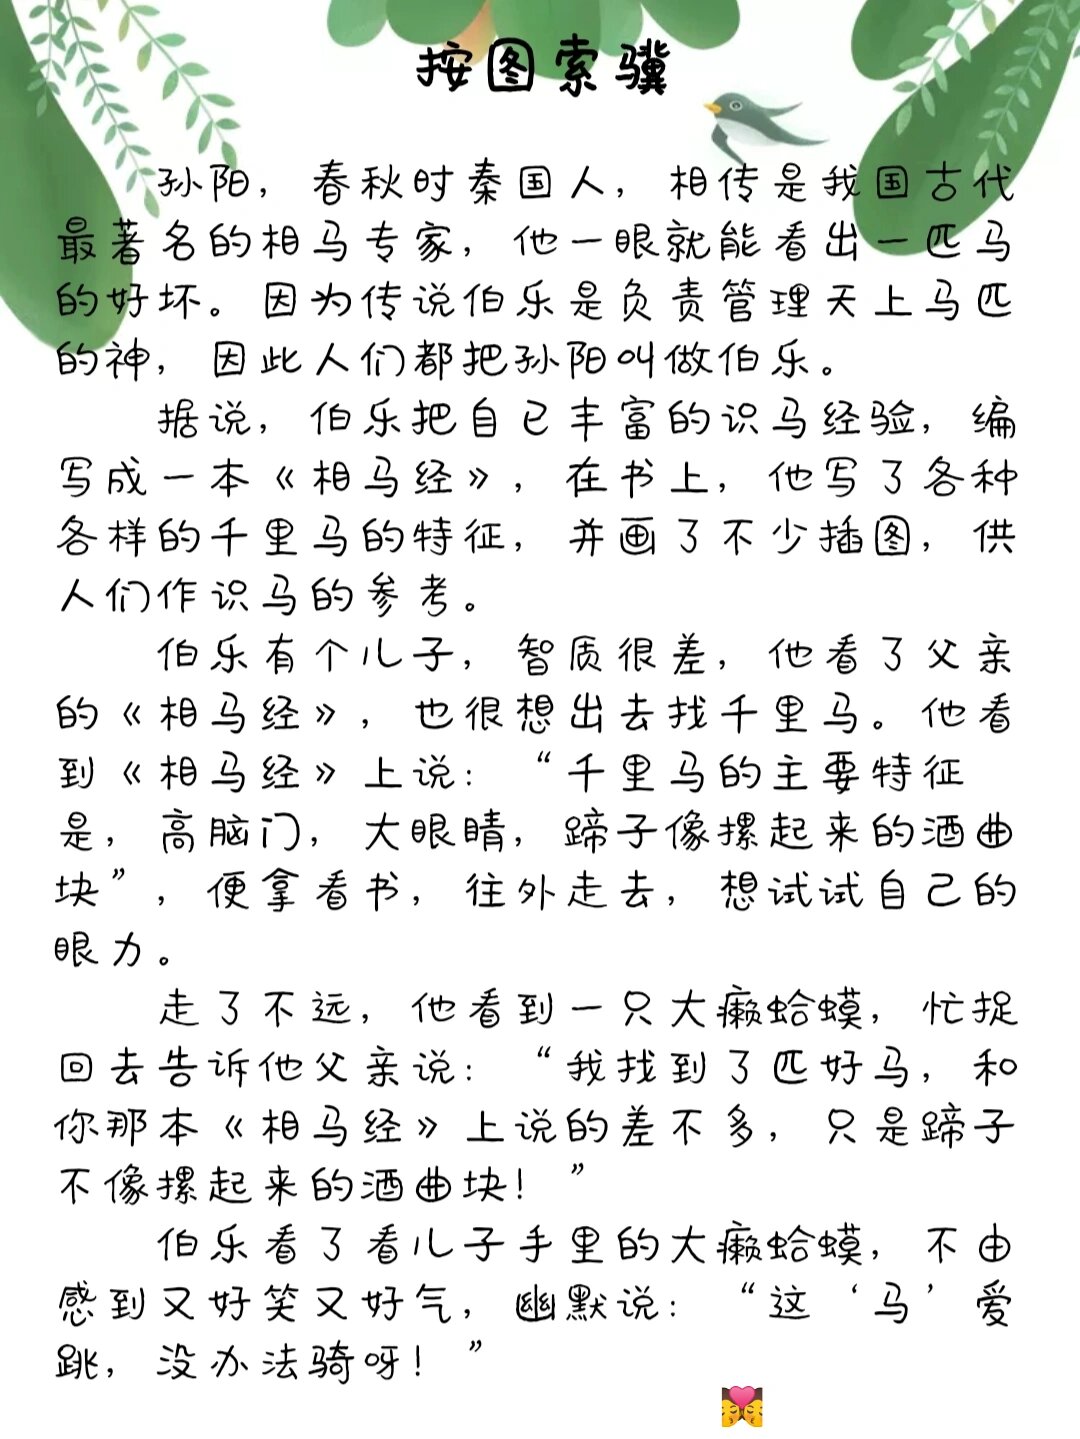 按图索骥
孙阳，春秋时秦国人，相传是我国古代
最著名的相马专家，他一眼就能看出一匹马
的好坏。因为传说伯乐是负责管理天上马匹
的神，因此人们都把孙阳叫做伯乐。
据说，伯乐把自已丰富的识马经验，编
写成一本《相马经》，在书上，他写了各种
各样的千里马的特征，并画了不少插图，供
人们作识马的参考。
伯乐有个儿子，智质很差，他看了父亲
的《相马经》，也很想出去找千里马。他看
到《相马经》上说：“千里马的主要特征
是，高脑门，大眼睛，蹄子像摞起来的酒曲
块”，便拿看书，往外走去，想试试自己的
眼力。
走了不远，他看到一只大癞蛤蟆，忙捉
回去告诉他父亲说：“我找到了匹好马，和
你那本《相马经》上说的差不多，只是蹄子
不像摞起来的酒曲块！”
伯乐看了看儿子手里的大癞蛤蟆，不由
感到又好笑又好气，幽默说：“这‘马’爱
跳，没办法骑呀！”